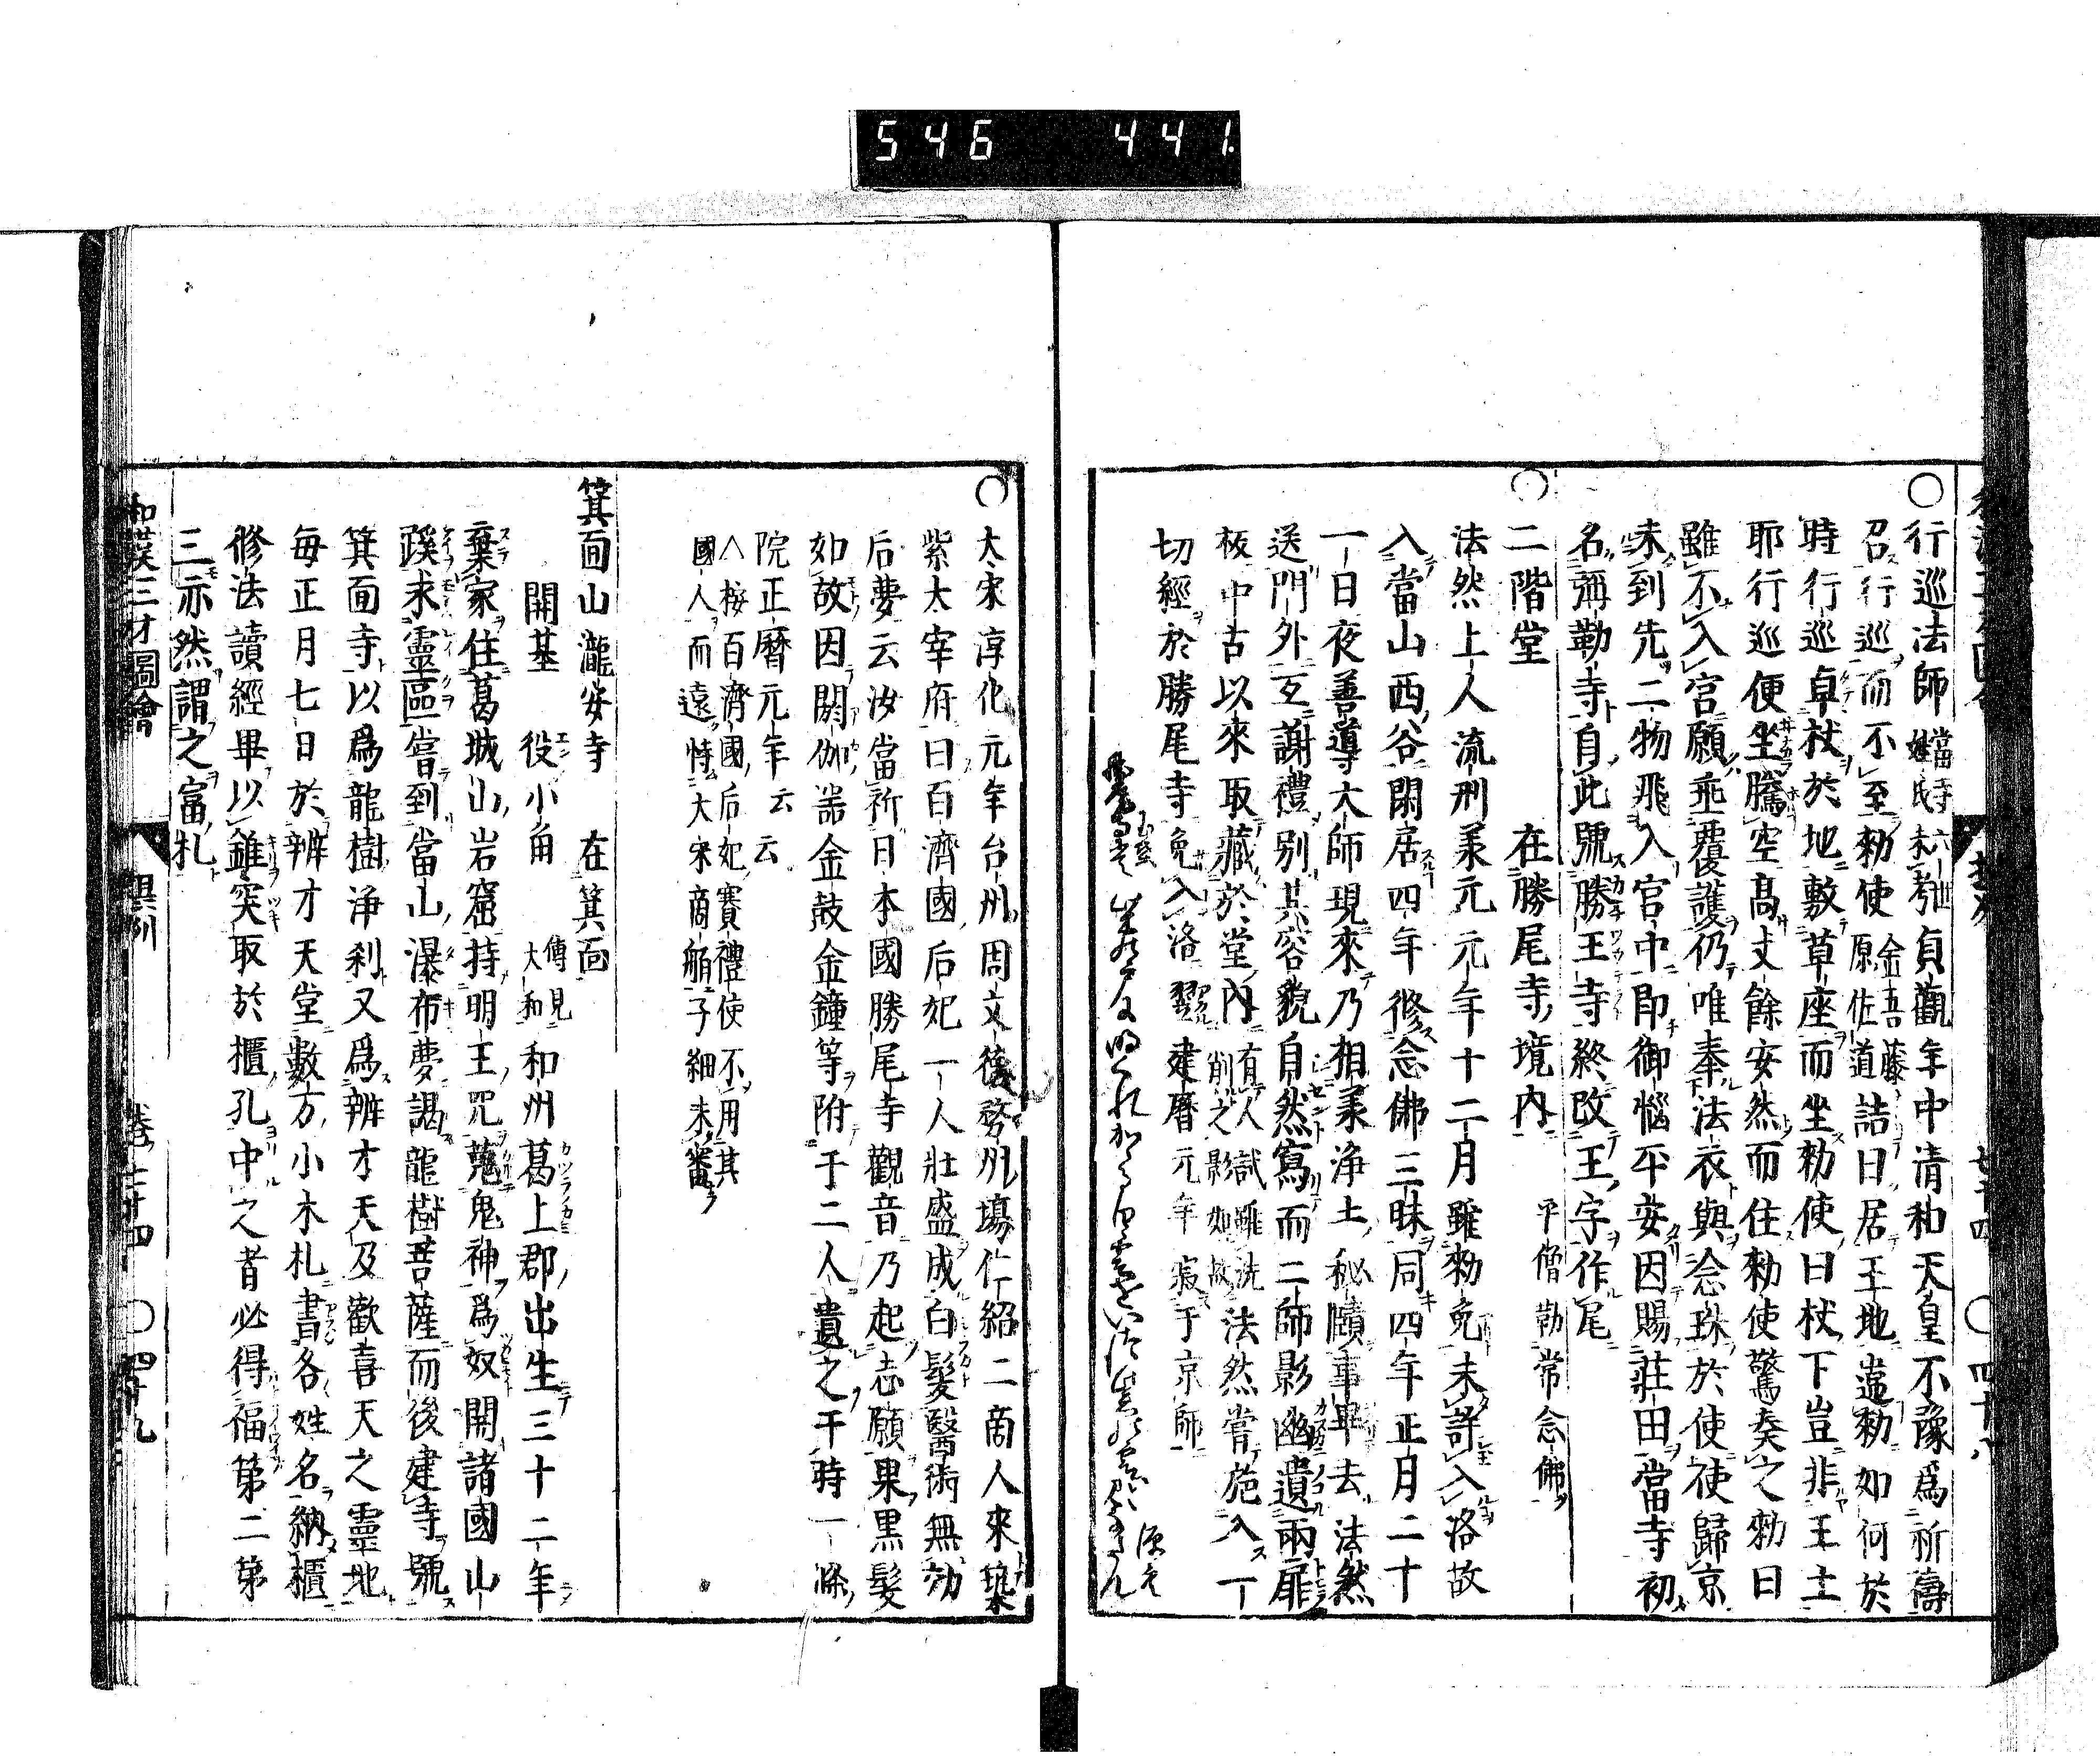 546 441.
○行巡法師 當寺六世 姓氏未考 貞觀年中清和天皇不豫爲祈禱
召行巡而不至勅使 金吾藤原佐道 詰曰居王地違勅如何於
時行巡卓杖於地敷草座而坐勅使曰杖下豈非王土
耶行巡便坐騰空高丈餘安然而住勅使驚奏之勅曰
雖不入宮願垂覆護仍唯奉法衣與念珠於使使歸京
未到先二物飛入官中即御惱平安因賜莊田當寺初
名彌勒寺自此號勝王寺終改王字作尾
○二階堂 在勝尾寺境内 平僧勤常念佛
法然上人流刑羕元元年十二月雖勅免未許入洛故
入當山西谷閑居四年修念佛三昧同四年正月二十
一日夜善導大師現來乃相羕淨土秘賾事畢去法然
送門外互謝禮別其容貌自然寫而二師影幽遺兩扉
板中古以來取藏於堂内 有人試雖洗削之影如故 法然嘗施入一
切經於勝尾寺免入洛翌建曆元年寂于京師
玉葉 源空
○太宋淳化元年台州周文德務州塲仁紹二商人來築
紫大宰府曰百濟國后妃一人壯盛成白髮醫術無効
后夢云汝當祈日本國勝尾寺觀音乃起志願果黒髮
如故因閼伽噐金鼓金鐘等附于二人遺之于時一條
院正曆元年云云
△按百濟國后妃賽禮使不用其
國人而遠恃大宋商舶子細未審
箕面山瀧安寺 在箕面
開基 役小角 傳見大和 和州葛上郡出生三十二年
棄家住葛城山岩窟持明王咒驅鬼神爲奴開諸國山
蹊求靈區嘗到當山瀑布夢謁龍樹菩薩而後建寺號
箕面寺以爲龍樹淨刹又爲辨才天及歡喜天之靈地
毎正月七日於辨才天堂數万小木札書各姓名納櫃
修法讀經畢以錐突取於櫃孔中之者必得福第二第
三亦然謂之富札
和漢三才圖會 卷七十四 ○四十九